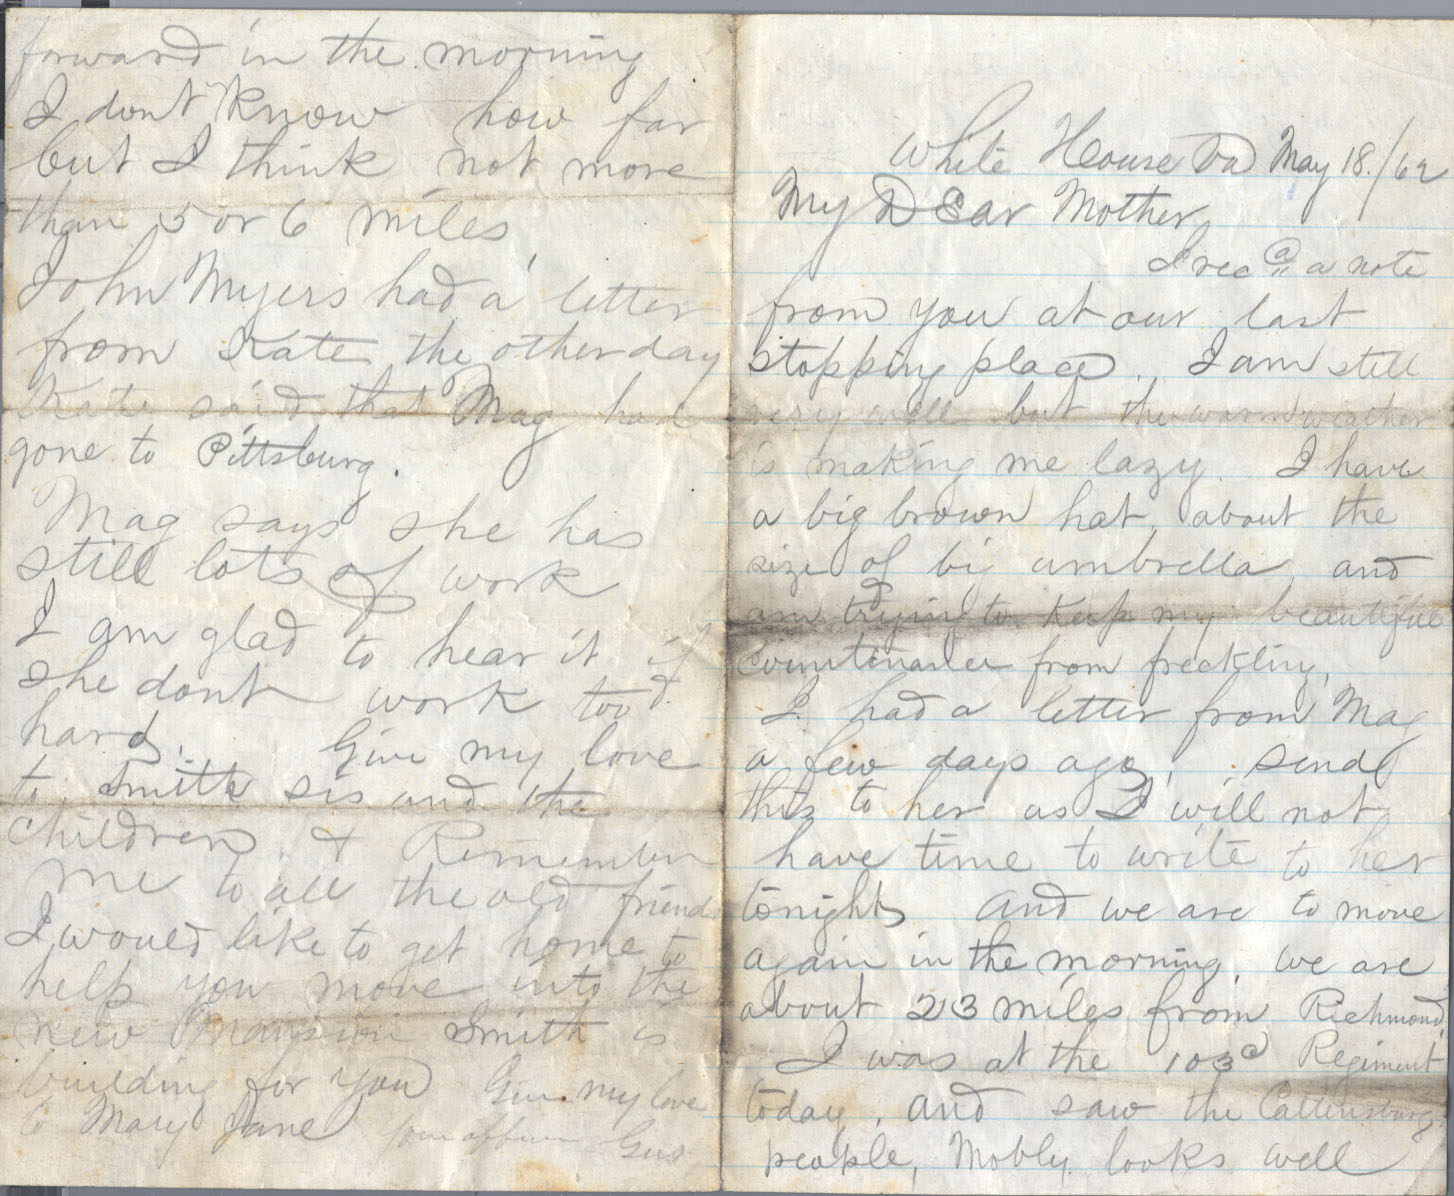 White House Va May 18./62
My DEar Mother
I recd a note
from you at our last
stopping place. I am still
very well but the warm weather
is making me lazy. I have
a big brown hat, about the
size of big umbrella, and
am trying to keep my beautiful
from freckling,
I had a letter from Mag
a few days ago, send
this to her as I will not
have time to write to her
tonight and we are to move
again in the morning, we are
about 23 miles from Richmond,
I was at the 103d Regiment
today, and saw the
people, Mobly looks well
forward in the morning
I dont know how far
but I think not more
than 5 or 6 miles
John Myers had a letter
from Kate the other day
Kate said that Mag had
gone to Pittsburg.
Mag says she has
still lots of work
I am glad to hear it if
she dont work too
hard. Give my love
to Smith sis and the
children, & Remember
me to all the old friends
I would like to get home to
help you move into the
new Mansion Smith is
building for you Give my love
to Mary Jane Gus